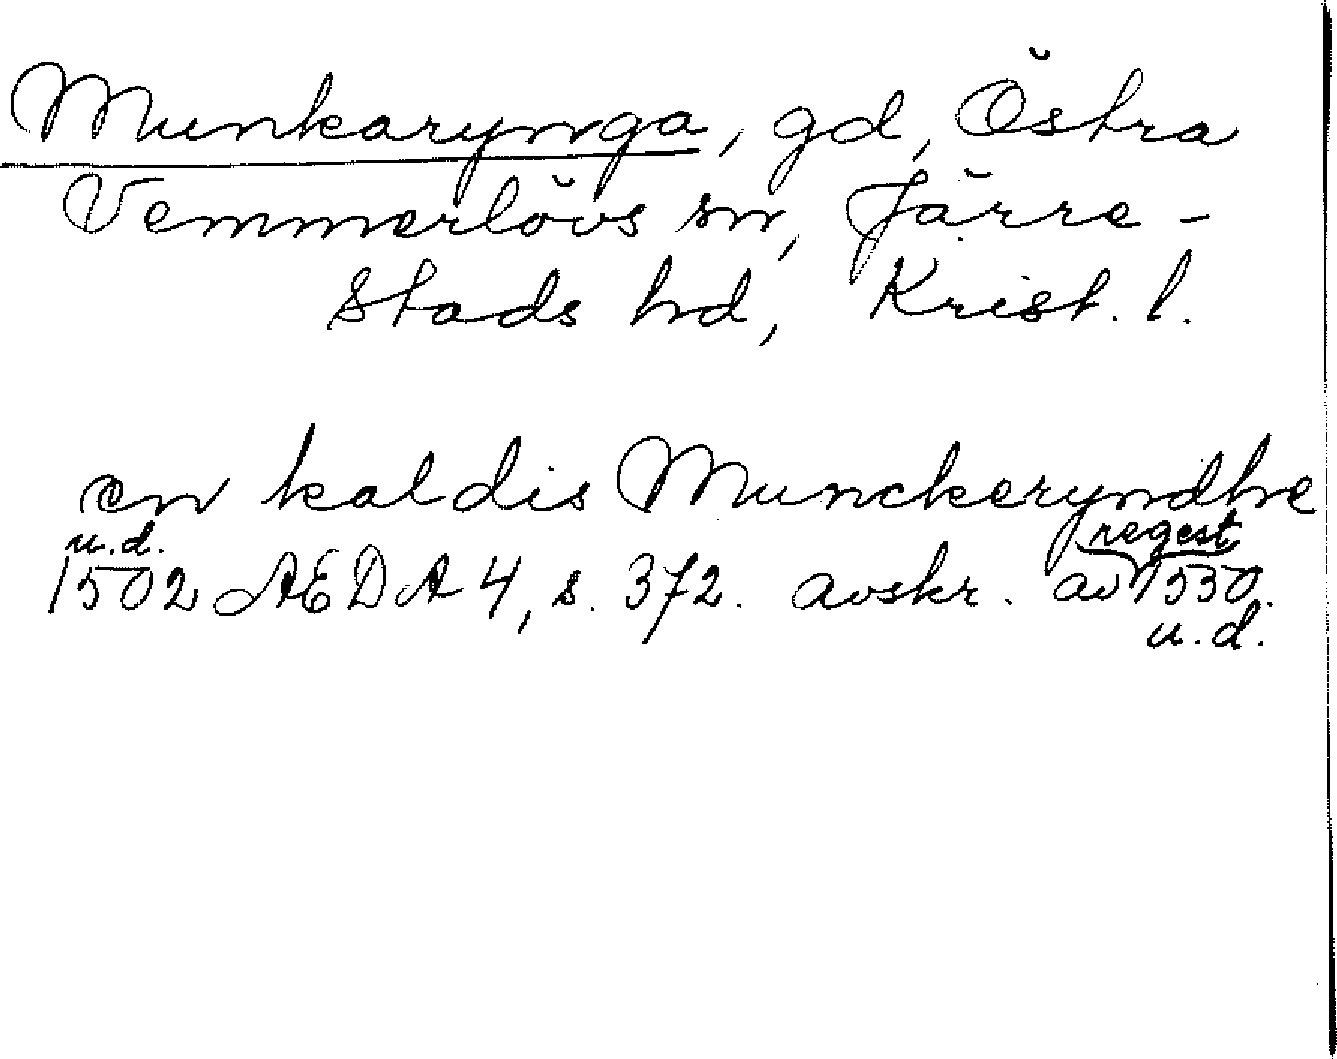 Munkarynga, gd, Östra
Vemmerlövs sn, Järre-
stads hd, Krist. l.
en kaldis Munckeryndhe
u.d. regest
1502 AEDA 4, s. 372. avskr. av 1530.
u.d.